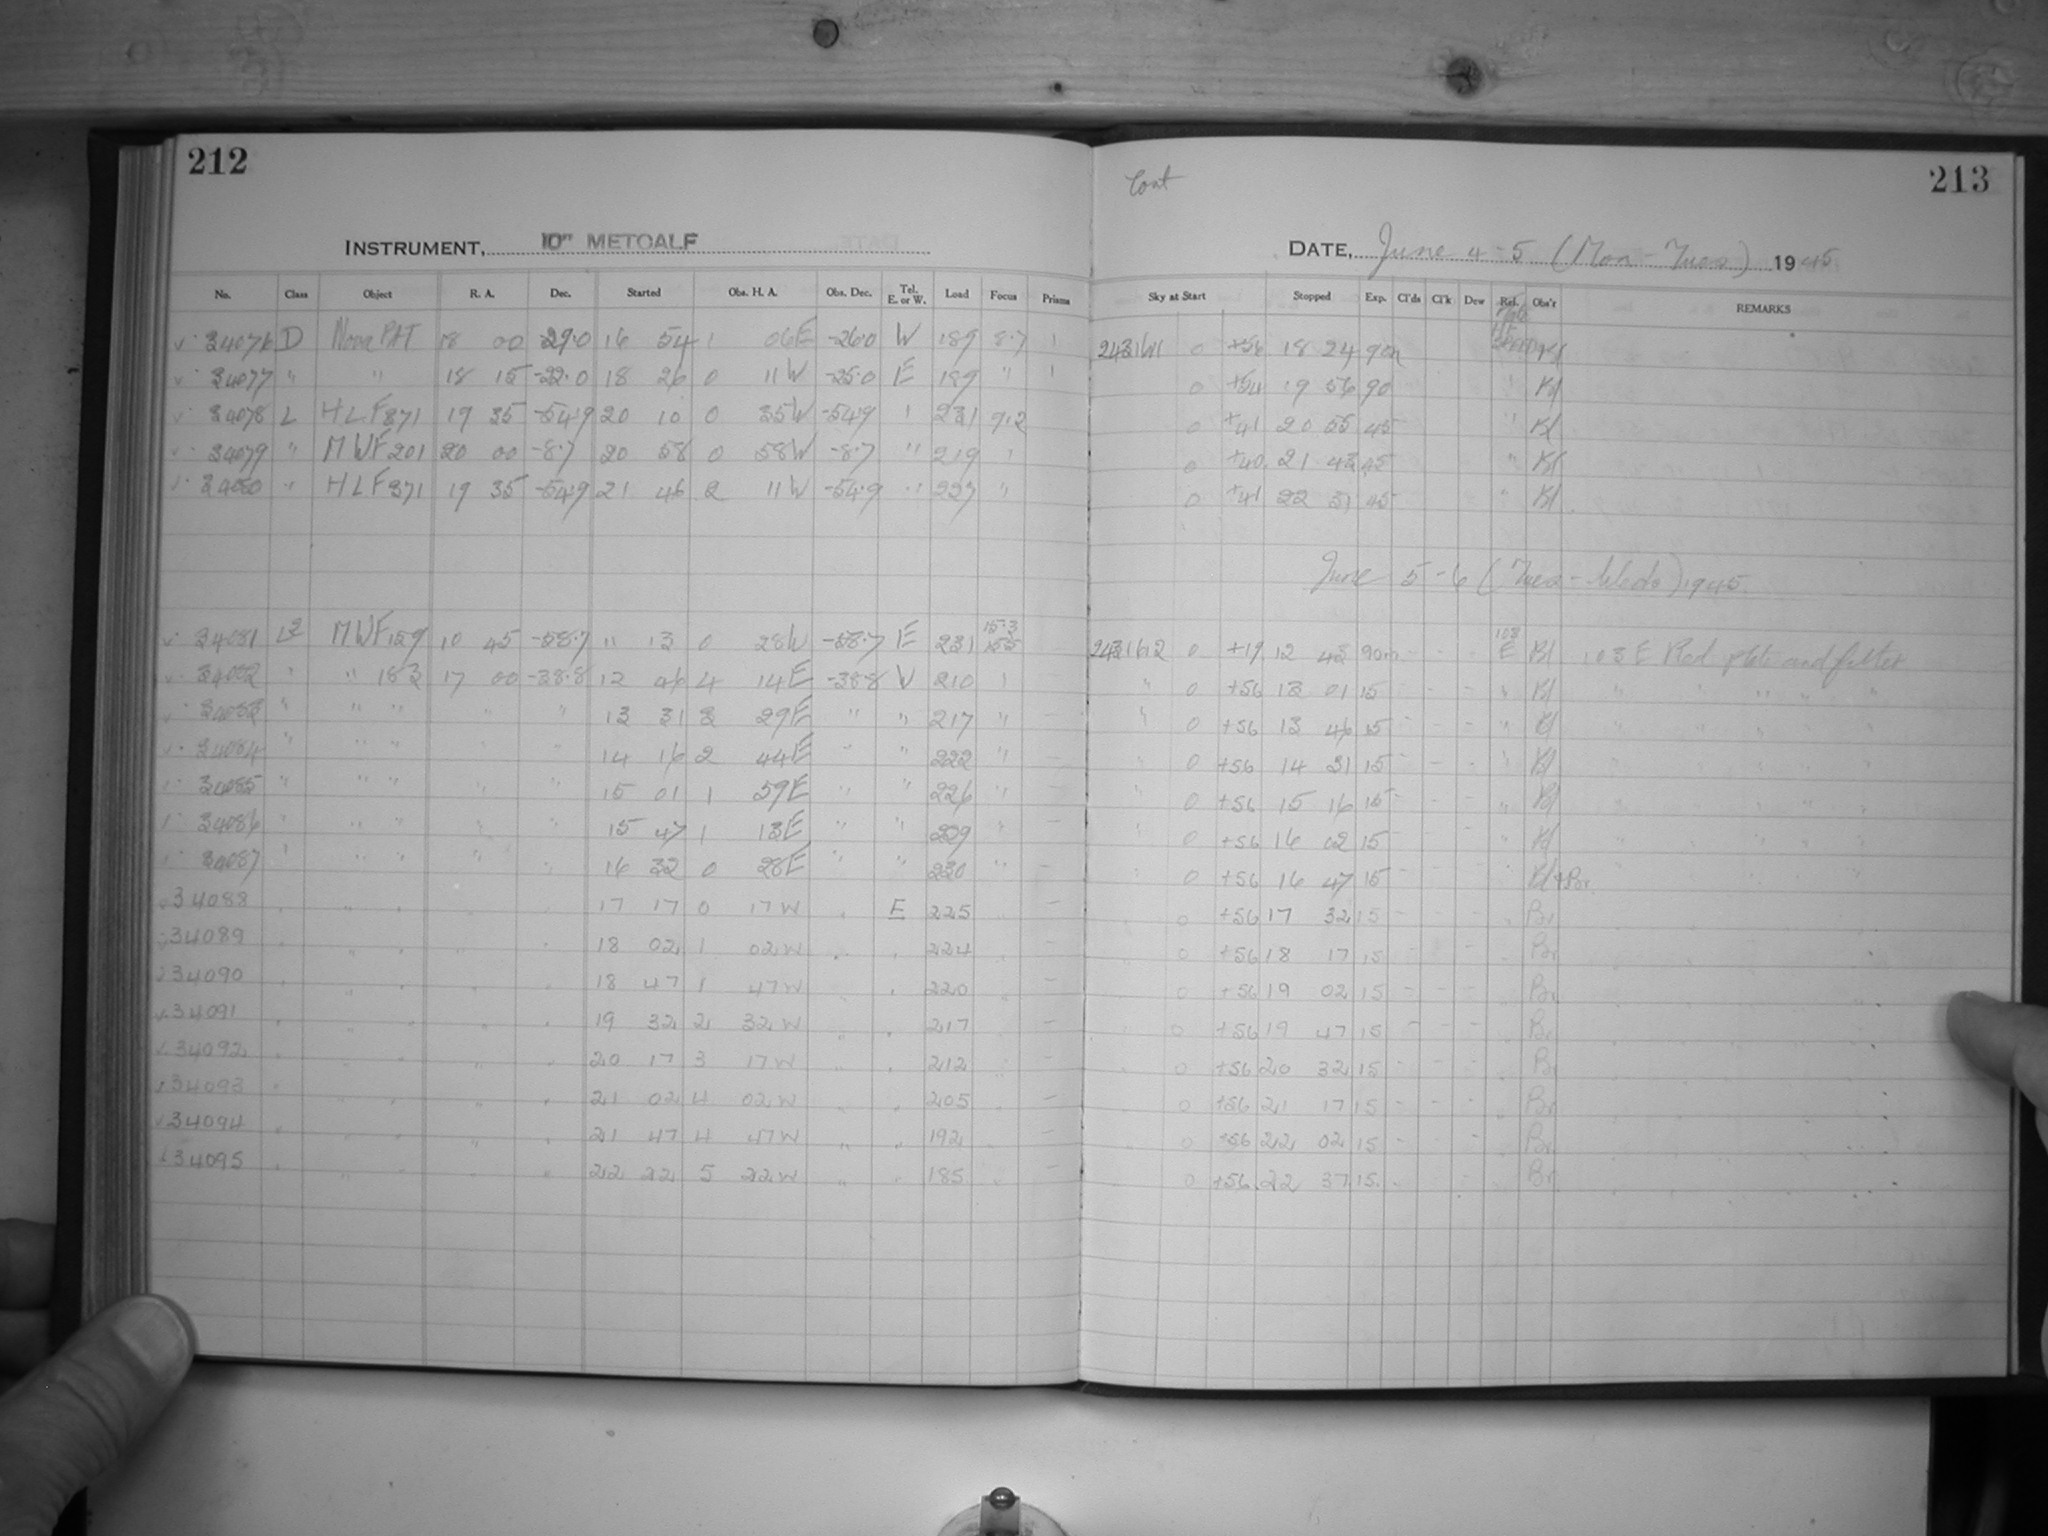 212
INSTRUMENT, 10" METCALF
No. Class Object R. A. Dec. Started Obs. H. A. Obs. Dec. Tel. E. or W. Load Focus Prisms
34076 D Nova 18 00 -29.0 16 54 1 06E -26.0 W 189 8.7 1
34077 " " 18 15 -22.0 18 26 0 11W -25.0 E 189 " 1
34078 L HLF371 19 35 -54.9 20 10 0 35W -54.9 " 231 9.2
34079 " MWF201 20 00 -8.7 20 58 0 58W -8.7 " 219 "
34080 " HLF371 19 35 -54.9 21 46 2 11W -54.9 " 227 "
34081 L2 MWF159 10 45 -58.7 11 13 0 28W -58.7 E 231 15.3
34082 " " 183 17 00 -38.8 12 46 4 14E -38.8 W 210 "
34083 " " " " " 13 31 3 29E " " 217 "
34084 " " " " " 14 16 2 44E " " 222 "
34085 " " " " " 15 01 1 59E " " 226 "
34086 " " " " " 15 47 1 13E " " 229 "
34087 " " " " " 16 32 0 28E " " 230 " -
34088 " " " " " 17 17 0 17W " E 225 " -
34089 " " " " " 18 02 1 02W " " 224 " -
34090 " " " " " 18 47 1 47W " " 220 " -
34091 " " " " " 19 32 2 32W " " 217 " -
34092 " " " " " 20 17 3 17W " " 212 " -
34093 " " " " " 21 02 4 02W " " 205 " -
34094 " " " " " 21 47 4 47W " " 192 " -
34095 " " " " " 22 22 5 22W " " 185 " -
213
Cont
DATE, June 4-5 (Mon-Tues) 1945
Sky at Start Stopped Exp. Cl'ds Cl'k Dew Rel. Obs'r REMARKS
2431611 0 +56 18 24 90m Bl
0 +54 19 56 90 " Bl
0 +41 20 55 45 " Bl
0 +40 21 43 45 " Bl
0 +41 22 31 45 " Bl
June 5-6 (Tues-Weds) 1945
2431612 0 +19 12 43 90m - - - 103 E Bl 103 E Red plate and filter
" 0 +56 13 01 15 - - - " Bl " " " " "
" 0 +56 13 46 15 - - - " Bl
" 0 +56 14 31 15 - - - " Bl
" 0 +56 15 16 15 - - - " Bl
" 0 +56 16 02 15 - - - " Bl
" 0 +56 16 47 15 - - - " Bl+Br.
0 +56 17 32 15 - - - " Br
0 +56 18 17 15 - - - " Br
0 +56 19 02 15 - - - " Br
0 +56 19 47 15 - - - " Br
0 +56 20 32 15 - - - " Br
0 +56 21 17 15 - - - " Br
0 +56 22 02 15 - - - " Br
0 +56 22 37 15 - - - " Br